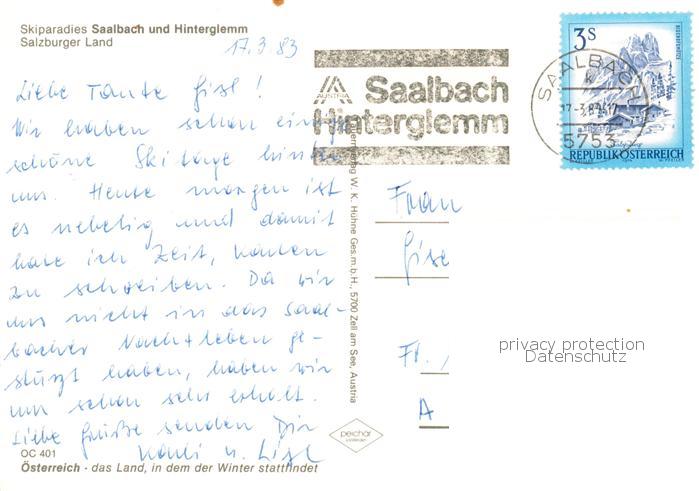 Skiparadies Saalbach und Hinterglemm
Salzburger Land
17.3.83
Liebe Tante Gisl!
Wir haben schon einige
schöne Skitage hinter
uns. Heute morgen ist
es nebelig und damit
habe ich Zeit, Karten
zu schreiben. Da wir
uns nicht in das Saal-
bacher Nachtleben ge-
stürzt haben, haben wir
uns schon sehr erholt.
Liebe Grüße senden Dir
u.
OC 401
Österreich - das Land, in dem der Winter stattfindet
W. K. Huhne Ges.m.b.H., 5700 Zell am See, Austria
peichär
AUSTRIA
Saalbach
Hinterglemm
SAALBACH
5753
3S
REPUBLIK ÖSTERREICH
Frau
Gise
A
privacy protection
Datenschutz